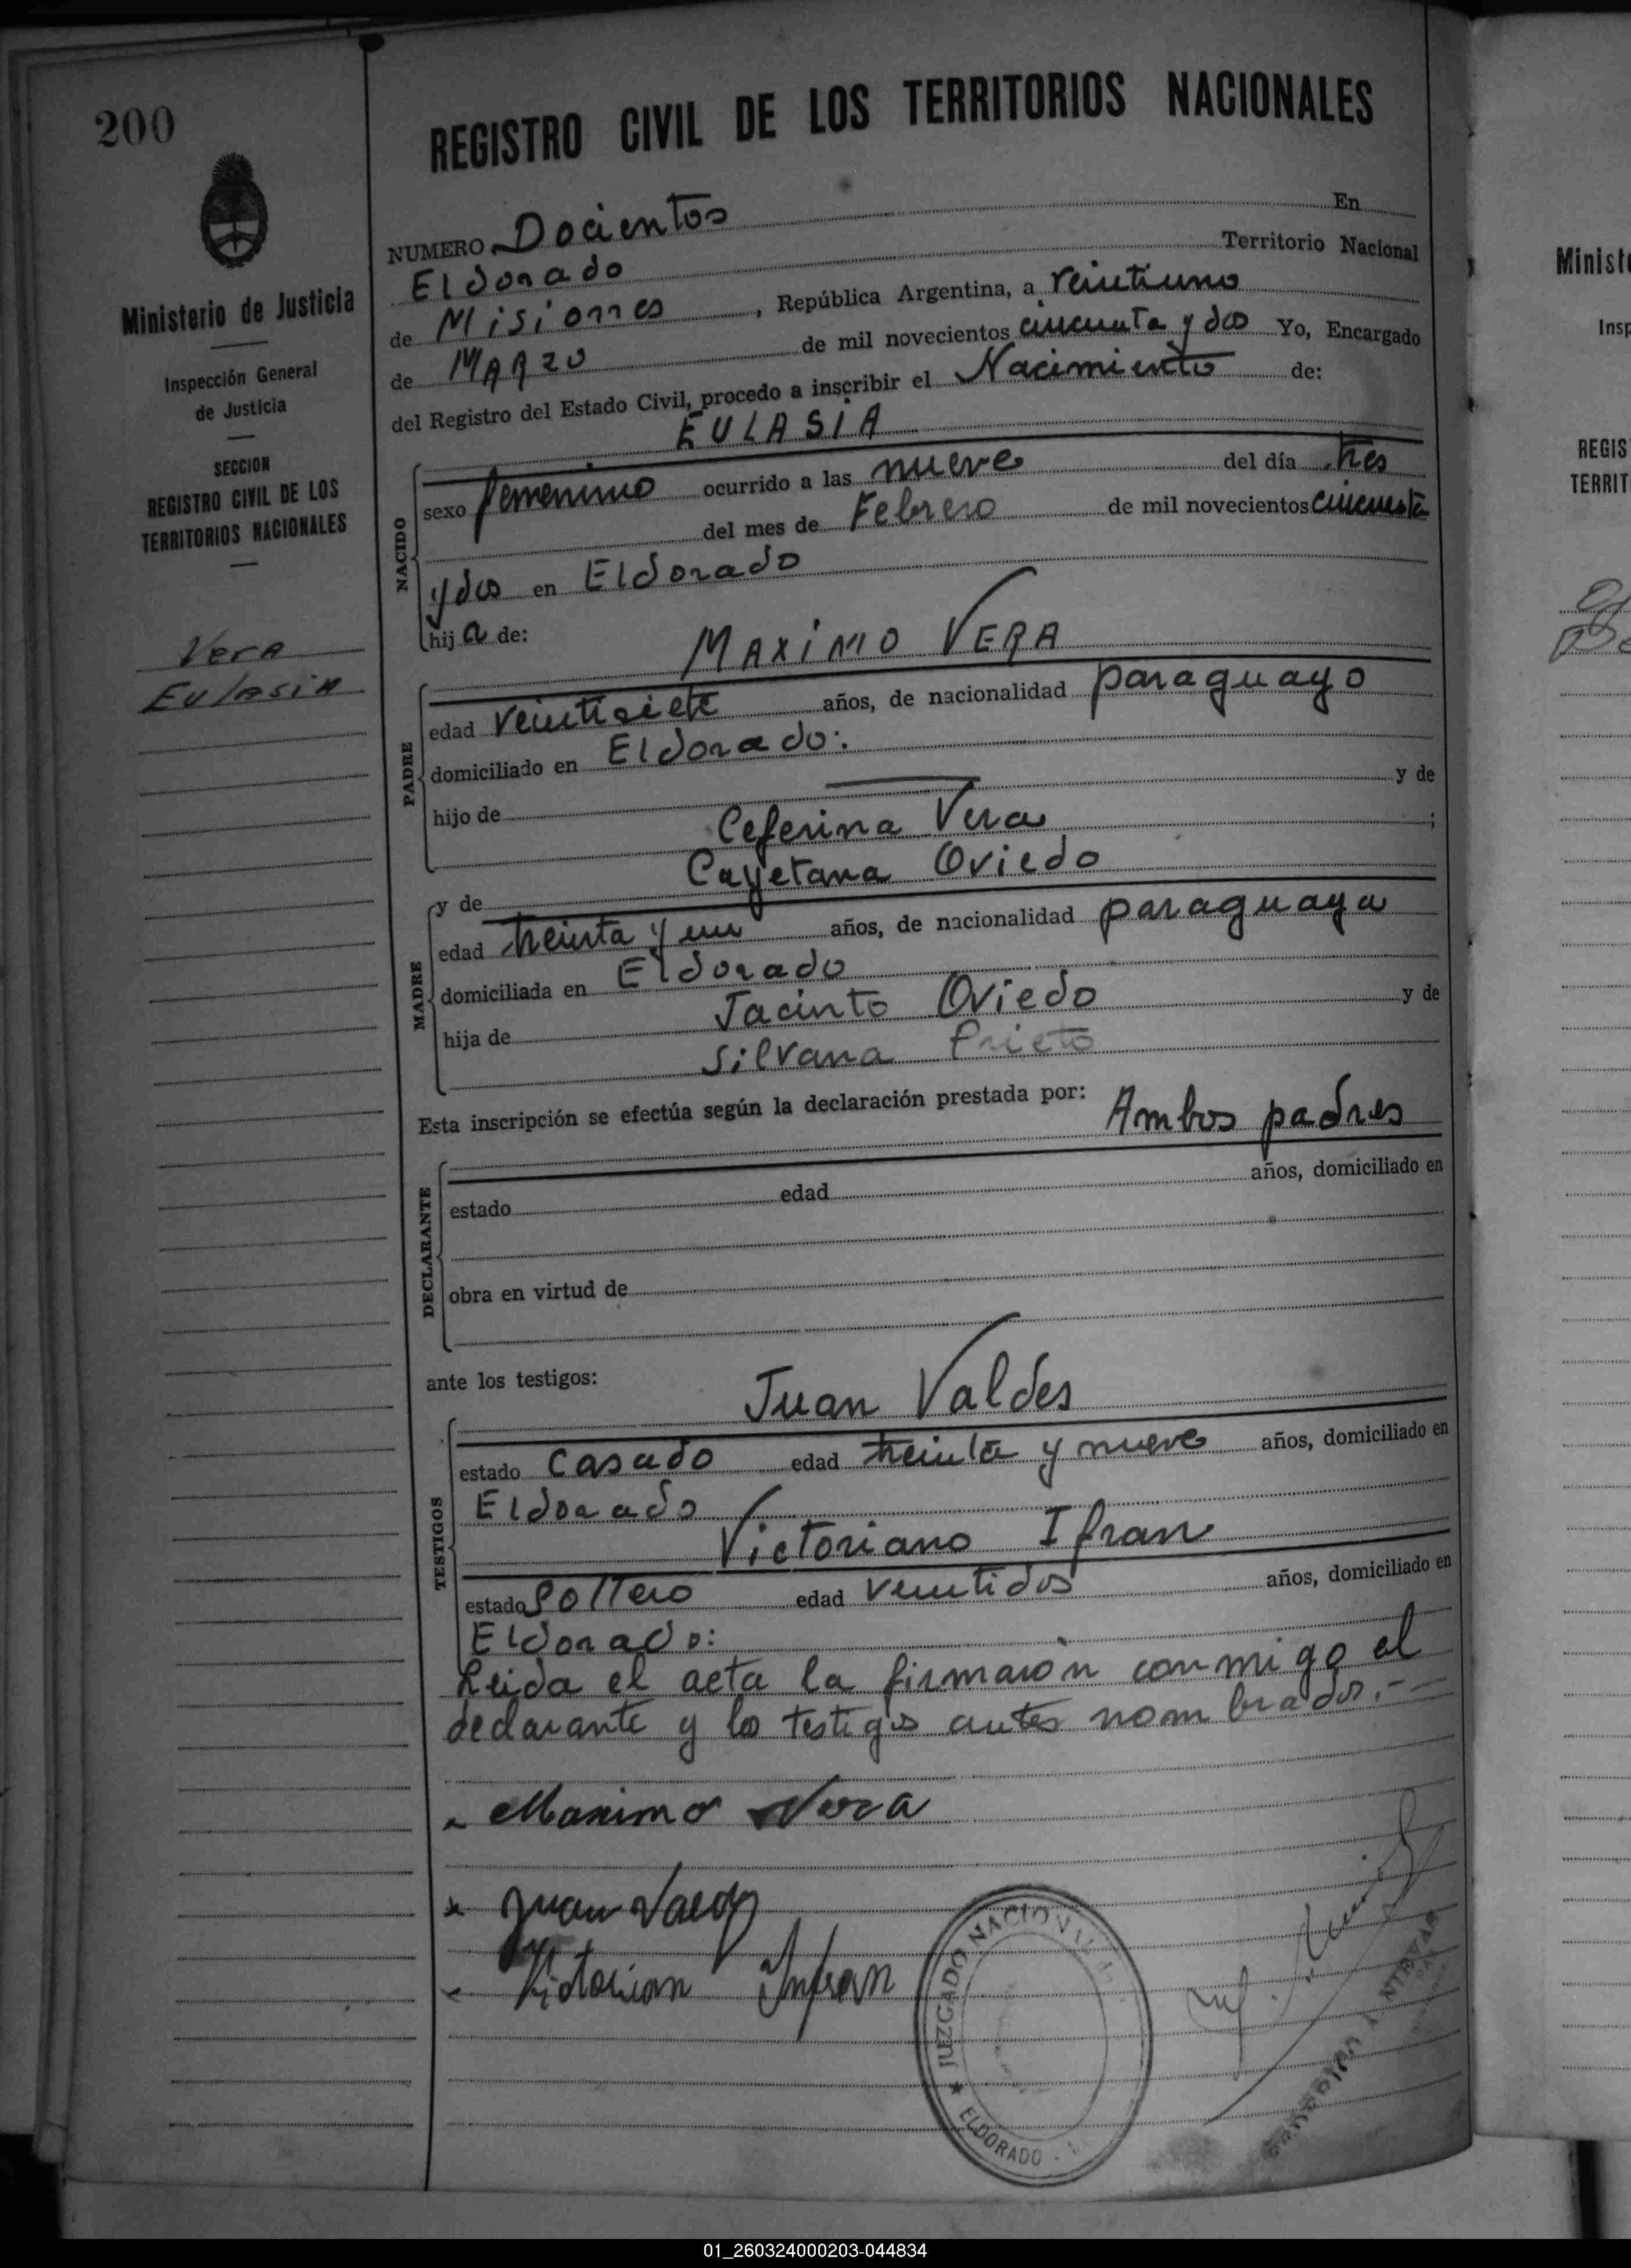 200
REGISTRO CIVIL DE LOS TERRITORIOS NACIONALES
Ministerio de Justicia
Inspección General
de Justicia
SECCION
REGISTRO CIVIL DE LOS
TERRITORIOS NACIONALES
Vera
Eulasia
NUMERO Docientos En
Eldorado Territorio Nacional
de Misiones, República Argentina, a veintiuno
de MARZO de mil novecientos cincuenta y dos Yo, Encargado
del Registro del Estado Civil, procedo a inscribir el Nacimiento de:
EULASIA
NACIDO
sexo femenino ocurrido a las nueve del día tres
del mes de Febrero de mil novecientos cincuenta
y dos en Eldorado
hija de:
MAXIMO VERA
PADRE
edad veintisiete años, de nacionalidad paraguayo
domiciliado en Eldorado:
hijo de y de
Ceferina Vera ;
y de Cayetana Oviedo
MADRE
edad treinta y un años, de nacionalidad paraguaya
domiciliada en Eldorado
hija de Jacinto Oviedo y de
Silvana Prieto
Esta inscripción se efectúa según la declaración prestada por: Ambos padres
DECLARANTE
estado edad años, domiciliado en
obra en virtud de
ante los testigos:
Juan Valdes
TESTIGOS
estado Casado edad treinta y nueve años, domiciliado en
Eldorado
Victoriano Ifran
estado Soltero edad veintidos años, domiciliado en
Eldorado:
Leida el acta la firmaron conmigo el
declarante y los testigos antes nombrados.--
Maximo Vera
Juan
Victorian Infran
JUZGADO NACIONAL
ELDORADO
Minist
Insp
REGIS
TERRIT
01_260324000203-044834